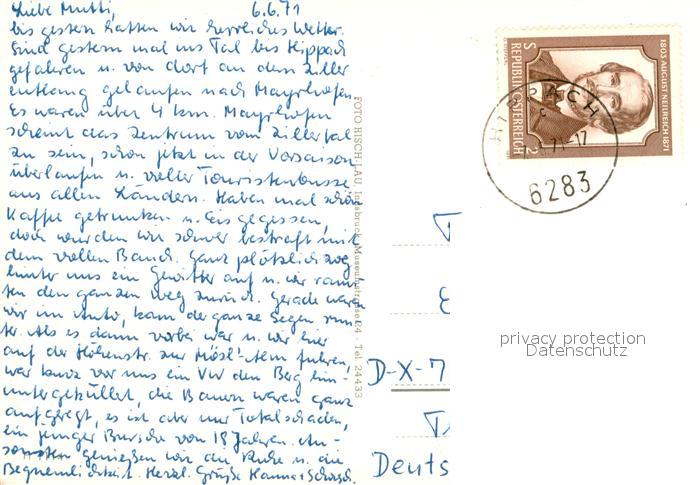 Liebe Mutti, 6.6.71
bis gestern hatten wir herrliches Wetter.
Sind gestern mal ins Tal bis Hippach
gefahren u. von dort an dem Ziller
entlang gelaufen nach Mayrhofen.
Es waren über 4 km. Mayrhofen
scheint das Zentrum vom Zillertal
zu sein, schon jetzt in der Vorsaison
überlaufen u. voller Touristenbusse
aus allen Ländern. Haben mal schön
Kaffee getrunken u. Eis gegessen,
doch wurden wir schwer bestraft mit
dem vollen Bauch. Ganz plötzlich zog
hinter uns ein Gewitter auf u. wir rann-
ten den ganzen Weg zurück. Gerade waren
wir im Auto, kam der ganze Segen run-
ter. Als es dann vorbei war u. wir hier
auf der Höhenstr. zur Mösl-Alm fuhren,
war kurz vor uns ein VW den Berg hin-
untergekullert, die Bauern waren ganz
aufgeregt, es ist aber nur Totalschaden,
ein junger Bursche von 18 Jahren. An-
sonsten genießen wir die Ruhe u. die
Bequemlichkeit. Herzl. Grüße Hanna
FOTO HISCH-LAU, Innsbruck, Museumstrasse 24 - Tel. 24433
1803 AUGUST NEILREICH 1871
REPUBLIK ÖSTERREICH
S 2
HIPPACH
71-17
6283
D-X-7
Deuts
privacy protection
Datenschutz